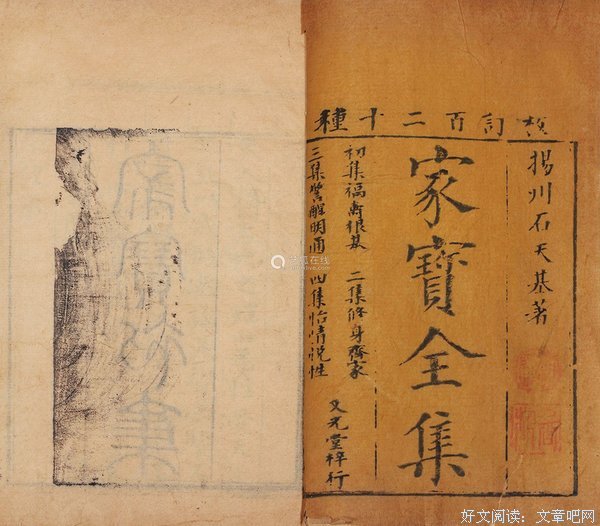 校訂百二十種
揚州石天基著
家寶全集
初集福壽根基 二集修身齊家
三集警醒明通 四集怡情悅性
文光堂梓行
好文阅读：文章吧网